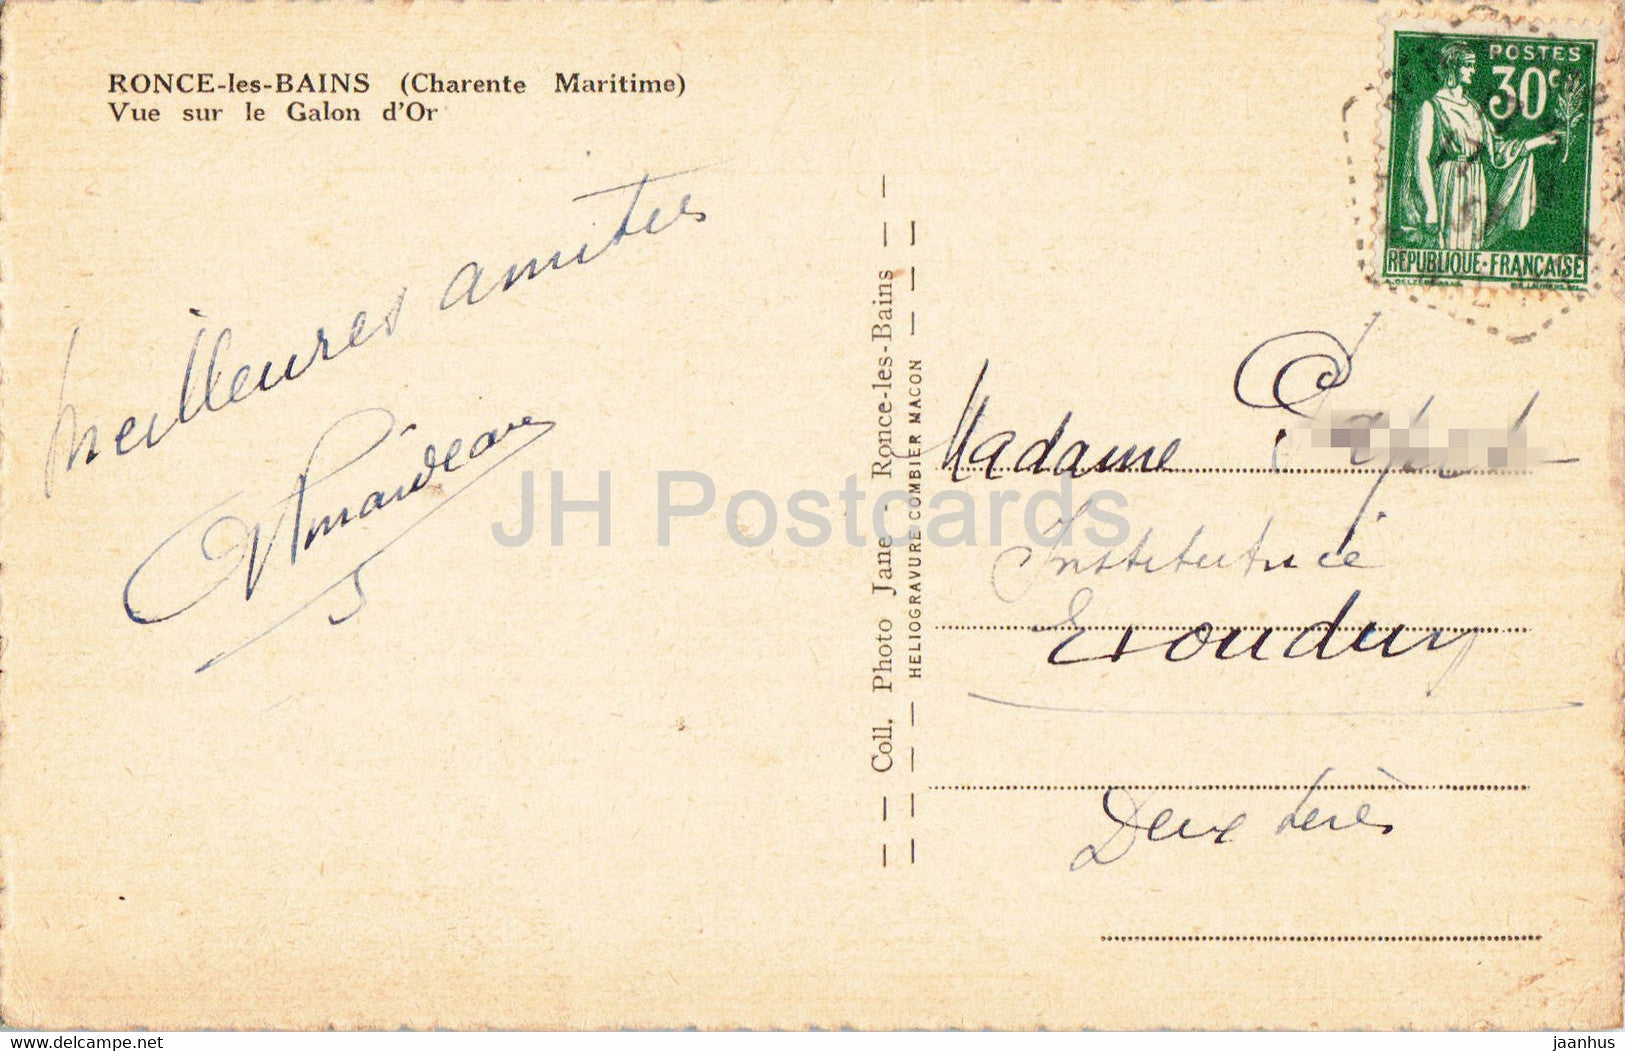 RONCE-les-BAINS (Charente Maritime)
Vue sur le Galon d'Or
meilleures amitiés
Coll. Photo Jane - Ronce-les-Bains
HELIOGRAVURE COMBIER MACON
POSTES
30c
REPUBLIQUE·FRANÇAISE
Madame
Institutrice
Exoudun
Deux Sèvres
JH Postcards
jaanhus